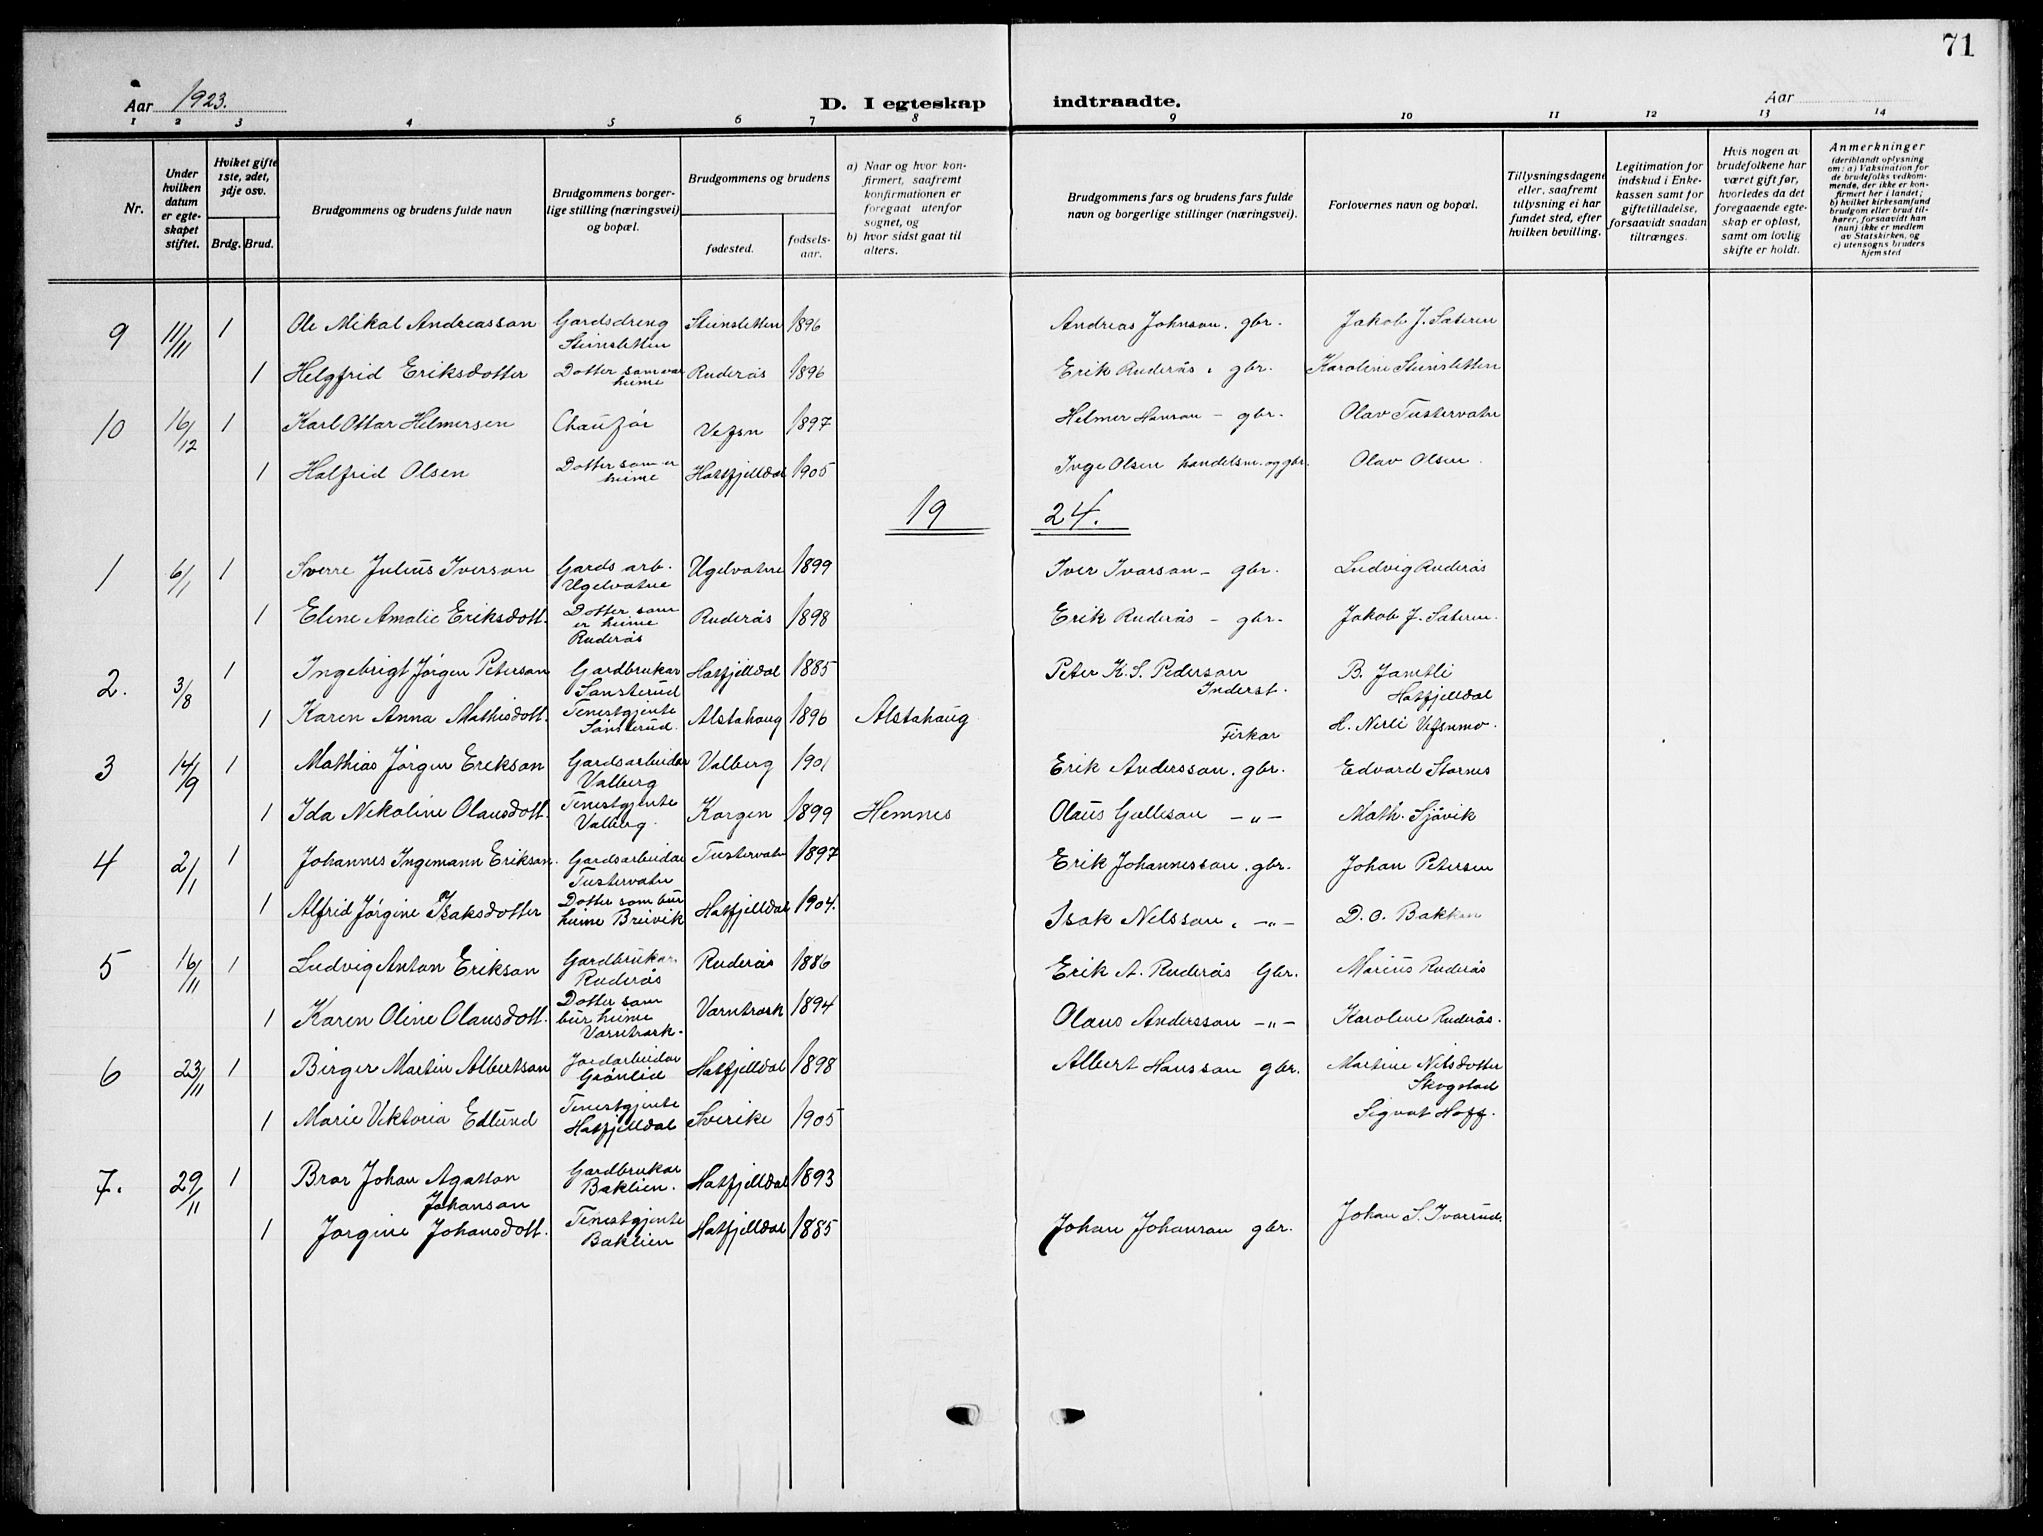 71
Aar 1923. D. I egteskap indtraadte. Aar
1 2 3 4 5 6 7 8 9 10 11 12 13 14
Nr.
Under hvilken datum er egte-skapet stiftet.
Hviket gifte 1ste, 2det, 3dje osv.
Brdg. Brud.
Brudgommens og brudens fulde navn
Brudgommens borger-lige stilling (næringsvei) og bopæl.
Brudgommens og brudens
fødested.
fødsels-aar.
a) Naar og hvor kon-firmert, saafremt konfirmationen er foregaat utenfor sognet, og
b) hvor sidst gaat til alters.
Brudgommens fars og brudens fars fulde navn og borgerlige stillinger (næringsvei).
Forlovernes navn og bopæl.
Tillysningsdagene eller, saafremt tillysning ei har fundet sted, efter hvilken bevilling.
Legitimation for indskud i Enke-kassen samt for giftetilladelse, forsaavidt saadan tiltrænges.
Hvis nogen av brudefolkene har været gift før, hvorledes da det foregaaende egte-skap er opløst, samt om lovlig skifte er holdt.
Anmerkninger
(deriblandt oplysning om: a) Vaksination for de brudefolks vedkom-mende, der ikke er kon-firmert her i landet; b) hvilket kirkesamfund brudgom eller brud til-hører, forsaavidt han (hun) ikke er medlem av Statskirken, og c) utensogns bruders hjemsted
9 11/11 1 Ole Mikal Andreasson Gardsdreng Steinsletten Steinsletten 1896 Andreas Johnson. gbr. Jakob J. Sæteren
1 Helgfrid Eriksdotter Dotter som var heime Ruderås 1896 Erik Ruderås, gbr. Karoline Steinsletten
10 16/12 1 Karl Ottar Helmersen Chaufør Vefsn 1897 Helmer Hanson - gbr. Olav Tustervatn
1 Halfrid Olsen Dotter som er heime Hatfjelldal 1905 Inge Olsen handelsm. og gbr. Olav Olsen.
19 24.
1 6/1 1 Sverre Julius Iverson Gards arb. Ugelvatne Ugelvatne 1899 Iver Ivarson - gbr. Ludvig Ruderås
1 Eline Amalie Eriksdott. Dotter som er heime Ruderås Ruderås 1898 Erik Ruderås - gbr. Jakob J. Sæteren.
2. 3/8 1 Ingebrigt Jørgen Peterson Gardbrukar Sansterud Hatfjelldal 1885 Peter K. S. Pederson Inderst. B. Jamtli Hatfjelldal
1 Karen Anna Mathisdott. Tenestgjente Sansterud. Alstahaug 1896 Alstahaug Fiskar H. Nerli Vefsnmo.
3 14/9 1 Mathias Jørgen Erikson Gardsarbeidar Valberg Valberg 1901 Erik Andersson. gbr. Edvard Stornes
1 Ida Nikoline Olausdott. Tenestgjente Valberg. Korgen 1899 Hemnes Olaus Gallison -"- Math. Sjåvik
4 2/1 1 Johannes Ingemann Erikson. Gardsarbeidar Tustervatn Tustervatn 1897 Erik Johannesson. gbr. Johan Petersen
1 Alfrid Jørgine Isaksdotter Dotter som bur heime Breivik Hatfjelldal 1904. Isak Nelsson. -"- D. O. Bakken
5 16/11 1 Ludvig Anton Erikson Gardbrukar Ruderås Ruderås 1886 Erik A. Ruderås Gbr. Marius Ruderås
1 Karen Oline Olausdott. Dotter som bur heime Varntresk. Varntresk 1894 Olaus Andersson -"- Karoline Ruderås.
6 23/11 1 Birger Martin Albertson Jordarbeidar Grønlid Hatfjelldal 1898 Albert Hansson gbr. Martine Nilsdotter Skogstad
1 Marie Viktoria Edlund Tenestgjente Hatfjelldal Sverike 1905 Sigvat Hoff.
7. 29/11 1 Bror Johan Agaton Johanson Gardbrukar Baklien. Hatfjelldal 1893
1 Jørgine Johansdott. Tenestgjente Baklien Hatfjelldal 1885 Johan Johanson gbr. Johan S. Ivarrud.